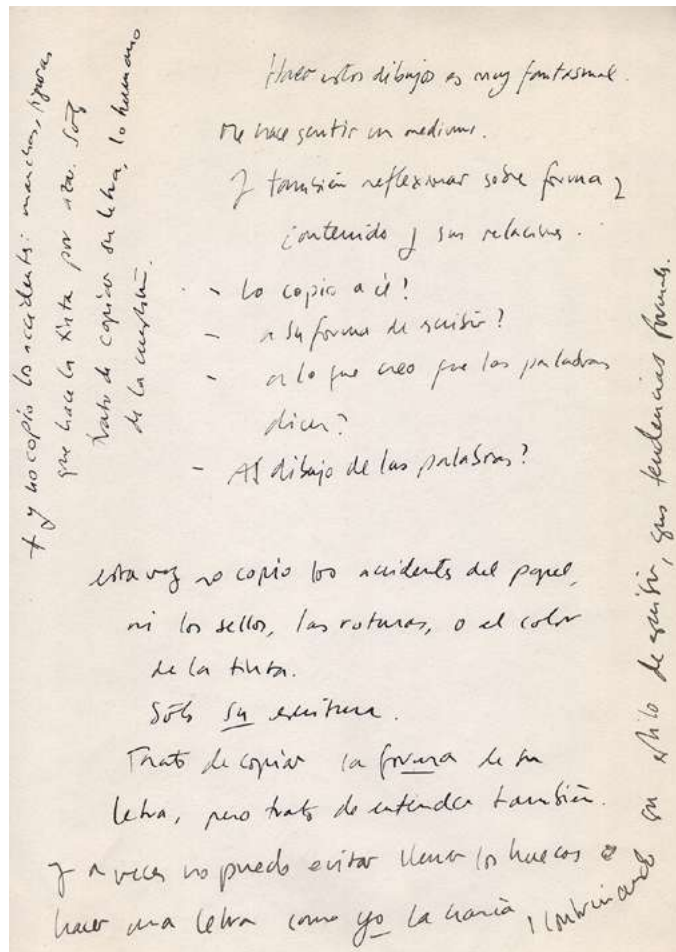 Hacer estos dibujos es muy fantasmal.
Me hace sentir un medium.
Y también reflexionar sobre forma y
contenido y sus relaciones.
- Lo copio a él?
- a su forma de escribir?
- a lo que creo que las palabras
dicen?
- Al dibujo de las palabras?
esta vez no copio los accidentes del papel,
ni los sellos, las roturas, o el color
de la tinta.
Sólo su escritura.
Trato de copiar la forma de su
letra, pero trato de entender también.
Y a veces no puedo evitar llenar los huecos o
hacer una letra como yo la haría,
continuando su estilo de escribir, sus tendencias formales.
+ y no copio los accidentes: manchas, figuras
que hace la tinta por azar. Sólo
trato de copiar su letra, lo humano
de la cuestión.